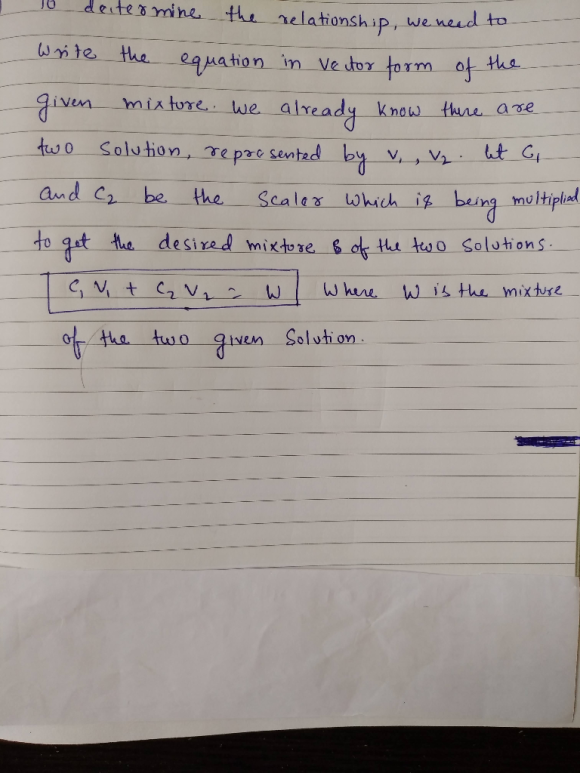 To deitermine the relationship, we need to
write the equation in vector form of the
given mixture. We already know there are
two Solution, represented by V₁, V₂. let C₁
and C₂ be the Scaler which is being multiplied
to get the desired mixture of the two Solutions.
C₁ V₁ + C₂ V₂ = W Where W is the mixture
of the two given Solution.